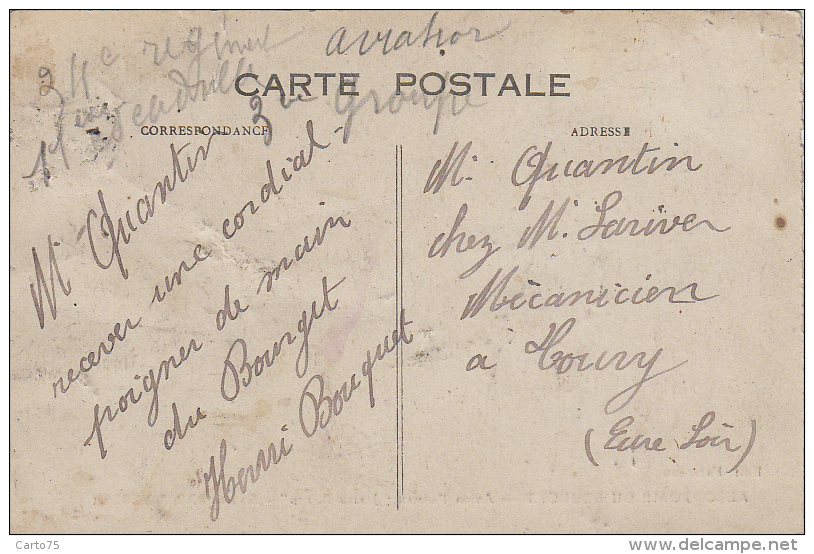 34e régiment aviation
11ème Escadrille 3me Groupe
CARTE POSTALE
CORRESPONDANCE
ADRESSE
Mr Quantin
recever une cordial-
poigner de main
du Bourget
Henri Bouquet
M. Quantin
chez M. Lariver
Mècanicien
a Houry
(Eure Loir)
Carto75
www.delcampe.net